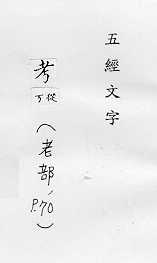 五經文字
考
从丂
（老部，P.70）